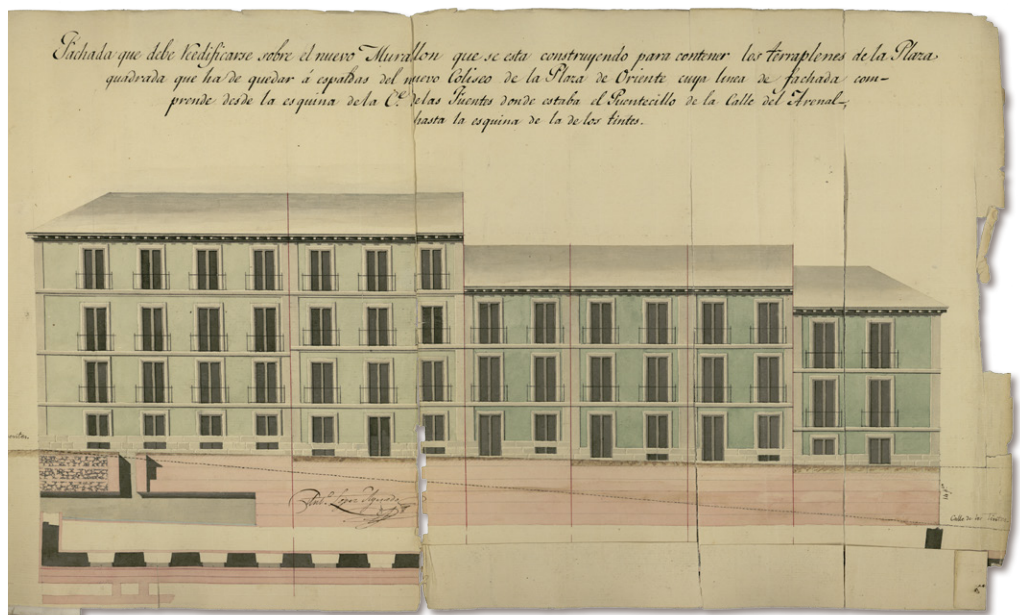 Fachada que debe Redificarse sobre el nuevo Murallon que se esta construyendo para contener los terraplenes de la Plaza
quadrada que ha de quedar á espaldas del nuevo Coliseo de la Plaza de Oriente cuya linea de fachada com-
prende desde la esquina de la C.e de las Fuentes donde estaba el Puentecillo de la Calle del Arenal,
hasta la esquina de la de los tintes.
Ant.o Lopez Aguado
Calle de las Fuentes